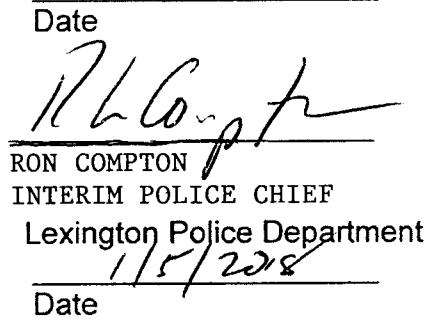 Date
R L Compton
RON COMPTON
INTERIM POLICE CHIEF
Lexington Police Department
1/5/2018
Date